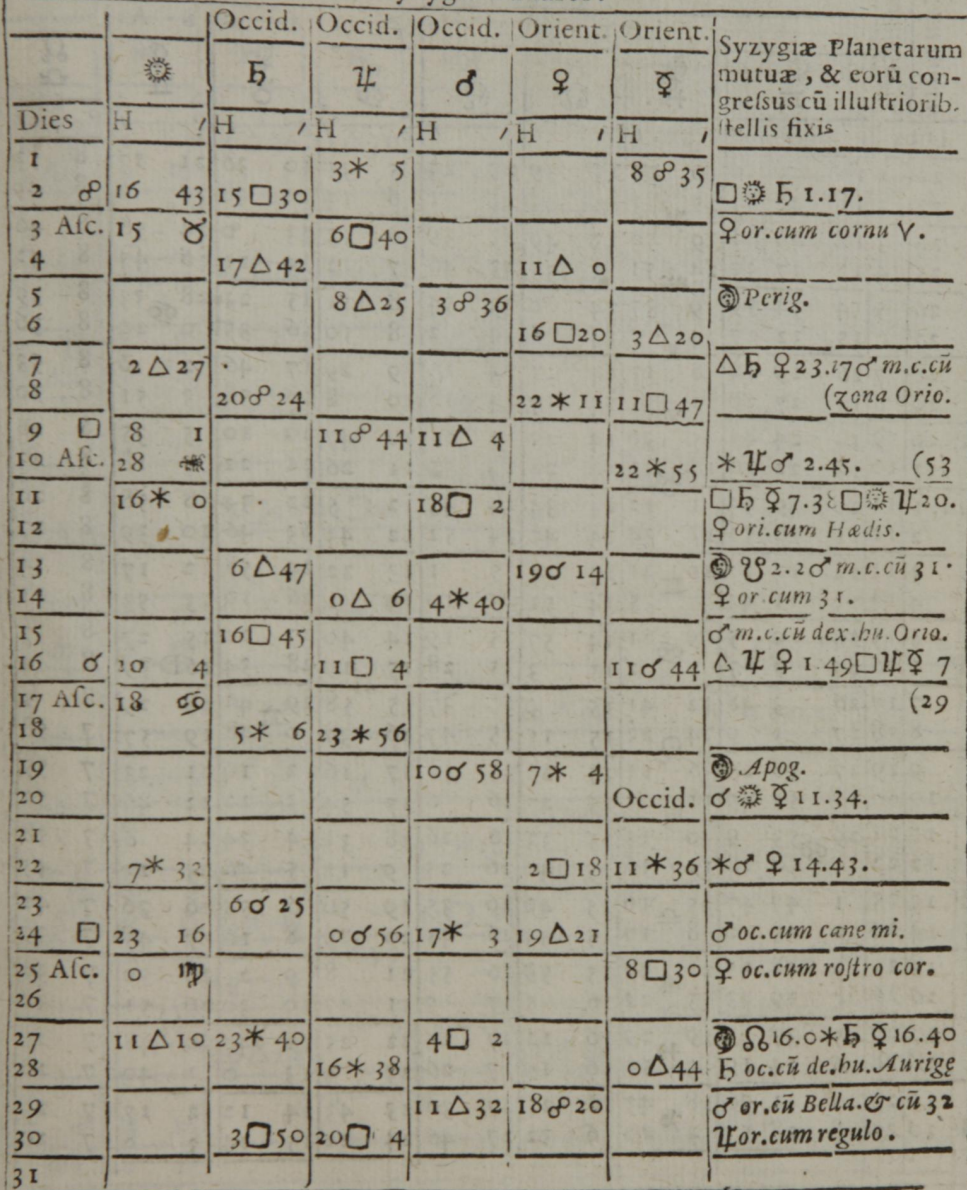 Occid. Occid. Occid. Orient. Orient. Syzygiæ Planetarum
☼ ♄ ♃ ♂ ♀ ☿ mutuæ, & eorū con-
gressus cū illustriorib.
Dies H ′ H ′ H ′ H ′ H ′ H ′ stellis fixis
1 3 ⚹ 5 8 ☍ 35
2 ☍ 16 43 15 □ 30 □ ☼ ♄ 1.17.
3 Asc. 15 ♉ 6 □ 40 ♀ or.cum cornu ♈.
4 17 △ 42 11 △ 0
5 8 △ 25 3 ☍ 36 ☽ Perig.
6 16 □ 20 3 △ 20
7 2 △ 27 △ ♄ ♀ 23.17 ♂ m.c.cū
8 20 ☍ 24 22 ⚹ 11 11 □ 47 (zona Orio.
9 □ 8 1 11 ☍ 44 11 △ 4
10 Asc. 28 22 ⚹ 55 ⚹ ♃ ♂ 2.45. (53
11 16 ⚹ 0 18 □ 2 □ ♄ ☿ 7.38 □ ☼ ♃ 20.
12 ♀ ori.cum Hædis.
13 6 △ 47 19 ☌ 14 ☽ ☋ 2.2 ♂ m.c.cū 31.
14 0 △ 6 4 ⚹ 40 ♀ or.cum 31.
15 16 □ 45 ♂ m.c.cū dex.hu.Orio.
16 ☌ 20 4 11 □ 4 11 ☌ 44 △ ♃ ♀ 1.49 □ ♃ ☿ 7
17 Asc. 18 ♋ (29
18 5 ⚹ 6 23 ⚹ 56
19 10 ☌ 58 7 ⚹ 4 ☽ Apog.
20 Occid. ☌ ☼ ☿ 11.34.
21
22 7 ⚹ 32 2 □ 18 11 ⚹ 36 ⚹ ♂ ♀ 14.43.
23 6 ☌ 25
24 □ 23 16 0 ☌ 56 17 ⚹ 3 19 △ 21 ♂ oc.cum cane mi.
25 Asc. 0 ♍ 8 □ 30 ♀ oc.cum rostro cor.
26
27 11 △ 10 23 ⚹ 40 4 □ 2 ☽ ☊ 16.0 ⚹ ♄ ☿ 16.40
28 16 ⚹ 38 0 △ 44 ♄ oc.cū de.hu.Aurige
29 11 △ 32 18 ☍ 20 ♂ or.cū Bella.& cū 32
30 3 □ 50 20 □ 4 ♃ or.cum regulo.
31